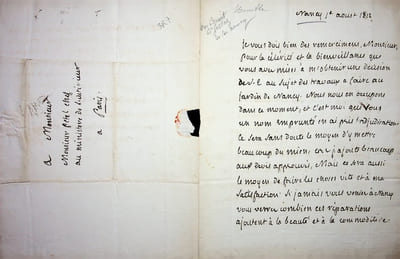 a Monsieur
Monsieur Petel chef
au ministère de l'intérieur
a Paris.
Nancy 1er aout 1812
Je vous dois bien des remerciments, Monsieur,
pour la célérité et la bienveillance que
vous avez mises à m'obtenir une décision
de S. E. au sujet des travaux a faire au
jardin de Nancy. Nous nous en occupons
dans ce moment, et c'est moi qui sous
un nom emprunté en ai pris l'adjudication
ce sera sans doute le moyen d'y mettre
beaucoup du mien, car j'ajoute beaucoup
aux devis approuvés, mais ce sera aussi
le moyen de faire les choses vite et à ma
satisfaction. Si jamais vous venez à Nancy
vous verrez combien ces réparations
ajoutent à la beauté et à la commodité